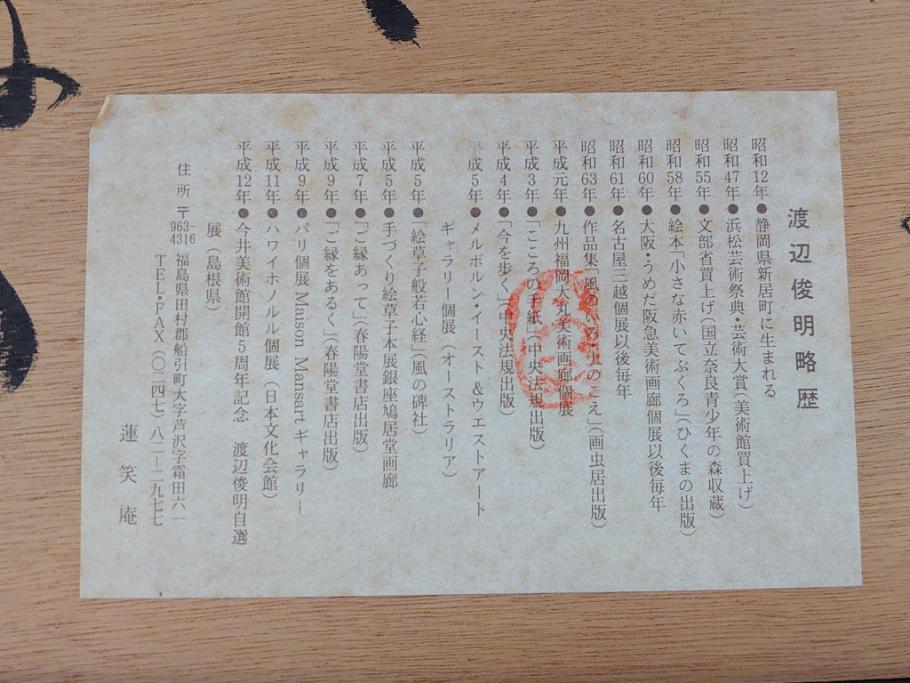 渡辺俊明略歴
昭和12年●静岡県新居町に生まれる
昭和47年●浜松芸術祭典・芸術大賞(美術館買上げ)
昭和55年●文部省買上げ(国立奈良青少年の森収蔵)
昭和58年●絵本「小さな赤いてぶくろ」(ひくまの出版)
昭和60年●大阪・うめだ阪急美術画廊個展以後毎年
昭和61年●名古屋三越個展以後毎年
昭和63年●作品集「風のいろ土のこえ」(画虫居出版)
平成元年●九州福岡大丸美術画廊個展
平成3年●「こころの手紙」(中央法規出版)
平成4年●「今を歩く」(中央法規出版)
平成5年●メルボルン・イースト&ウエストアート
ギャラリー個展(オーストラリア)
平成5年●「絵草子般若心経」(風の碑社)
平成5年●手づくり絵草子本展銀座鳩居堂画廊
平成7年●「ご縁あって」(春陽堂書店出版)
平成9年●「ご縁をあるく」(春陽堂書店出版)
平成9年●パリ個展 Maison Mansart ギャラリー
平成11年●ハワイホノルル個展(日本文化会館)
平成12年●今井美術館開館5周年記念 渡辺俊明自選
展(島根県)
住所 〒963-4316 福島県田村郡船引町大字芦沢字霜田六一
TEL・FAX(〇二四七)八二―二九七七
蓮笑庵